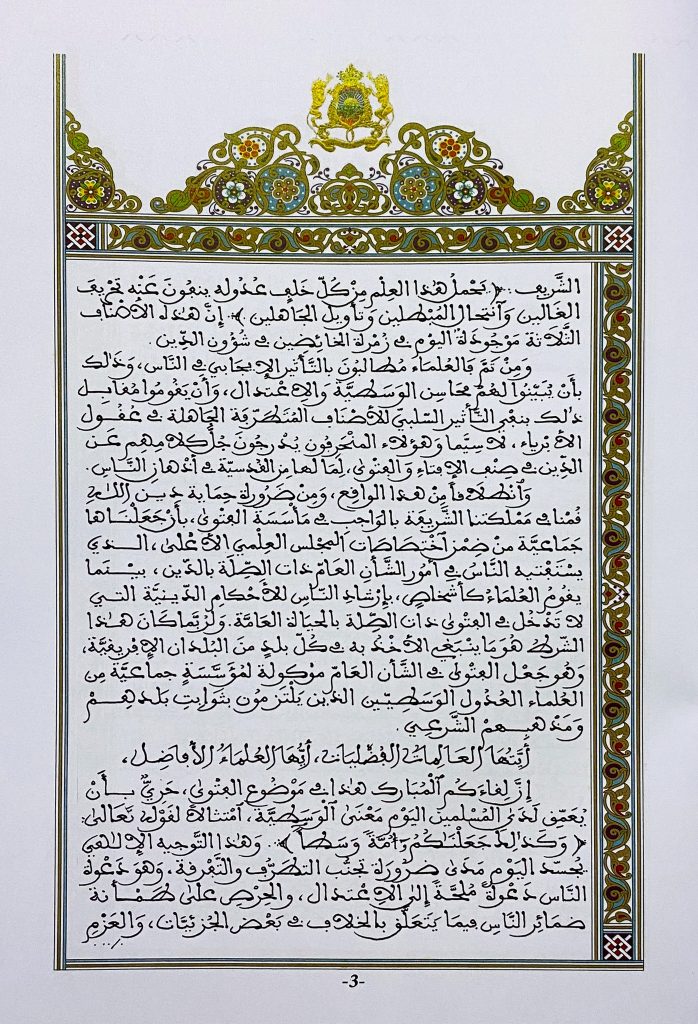 الشَّرِيف : ﴿ يَحْمِلُ هَٰذَا الْعِلْمَ مِنْ كُلِّ خَلَفٍ عُدُولُهُ يَنْفُونَ عَنْهُ تَحْرِيفَ
الْغَالِينَ وَٱنْتِحَالَ الْمُبْطِلِينَ وَتَأْوِيلَ الْجَاهِلِينَ ﴾ إِنَّ هَٰذِهِ الْأَصْنَافَ
الثَّلَاثَةَ مَوْجُودَةٌ الْيَوْمَ فِي زُمْرَةِ الْخَائِضِينَ فِي شُؤُونِ الدِّينِ.
وَمِنْ ثَمَّ فَالْعُلَمَاءُ مُطَالَبُونَ بِالتَّأْثِيرِ الْإِيجَابِي فِي النَّاسِ، وَذَٰلِكَ
بِأَنْ يُبَيِّنُوا لَهُمْ مَحَاسِنَ الْوَسَطِيَّةِ وَالِاعْتِدَالِ، وَأَنْ يَقُومُوا مُقَابِلَ
ذَٰلِكَ بِنَفْيِ التَّأْثِيرِ السَّلْبِيِّ لِلْأَصْنَافِ الْمُتَطَرِّفَةِ الْجَاهِلَةِ فِي عُقُولِ
الْأَبْرِيَاءِ، لَا سِيَّمَا وَهٰؤُلَاءِ الْمُنْحَرِفُونَ يُدْرِجُونَ جُلَّ كَلَامِهِمْ عَنِ
الدِّينِ فِي صِنْفِ الْإِفْتَاءِ وَالْفَتْوَىٰ، لِمَا لَهَا مِنَ الْقُدْسِيَّةِ فِي أَذْهَانِ النَّاسِ.
وَٱنْطِلَاقاً مِنْ هٰذَا الْوَاقِعِ، وَمِنْ ضَرُورَةِ حِمَايَةِ دِينِ اللَّهِ،
قُمْنَا فِي مَمْلَكَتِنَا الشَّرِيفَةِ بِالْوَاجِبِ فِي مَأْسَسَةِ الْفَتْوَىٰ، بِأَنْ جَعَلْنَاهَا
جَمَاعِيَّةً مِنْ ضِمْنِ ٱخْتِصَاصَاتِ الْمَجْلِسِ الْعِلْمِي الْأَعْلَىٰ، الَّذِي
يَسْتَفْتِيهِ النَّاسُ فِي أُمُورِ الشَّأْنِ الْعَامِّ ذَاتِ الصِّلَةِ بِالدِّينِ، بَيْنَمَا
يَقُومُ الْعُلَمَاءُ كَأَشْخَاصٍ، بِإِرْشَادِ النَّاسِ لِلْأَحْكَامِ الدِّينِيَّةِ الَّتِي
لَا تَدْخُلُ فِي الْفَتْوَىٰ ذَاتِ الصِّلَةِ بِالْحَيَاةِ الْعَامَّةِ. وَلَرُبَّمَا كَانَ هٰذَا
الشَّرْطُ هُوَ مَا يَنْبَغِي الْأَخْذُ بِهِ فِي كُلِّ بَلَدٍ مِنَ الْبُلْدَانِ الْإِفْرِيقِيَّةِ،
وَهُوَ جَعْلُ الْفَتْوَىٰ فِي الشَّأْنِ الْعَامِّ مَوْكُولَةً لِمُؤَسَّسَةٍ جَمَاعِيَّةٍ مِنَ
الْعُلَمَاءِ الْعُدُولِ الْوَسَطِيِّينَ الَّذِينَ يَلْتَزِمُونَ بِثَوَابِتِ بَلَدِهِمْ
وَمَذْهَبِهِمُ الشَّرْعِي.
أَيَّتُهَا الْعَالِمَاتُ الْفُضْلَيَاتُ، أَيُّهَا الْعُلَمَاءُ الْأَفَاضِلُ،
إِنَّ لِقَاءَكُمُ الْمُبَارَكَ هٰذَا فِي مَوْضُوعِ الْفَتْوَىٰ، حَرِيٌّ بِأَنْ
يُعَمِّقَ لَدَى الْمُسْلِمِينَ الْيَوْمَ مَعْنَىٰ الْوَسَطِيَّةِ، امْتِثَالًا لِقَوْلِهِ تَعَالَىٰ:
﴿ وَكَذَٰلِكَ جَعَلْنَاكُمُ أُمَّةً وَسَطاً ﴾. وَهٰذَا التَّوْجِيهُ الْإِلٰهِي
يُجَسِّدُ الْيَوْمَ مَدَىٰ ضَرُورَةِ تَجَنُّبِ التَّطَرُّفِ وَالتَّفْرِقَةِ، وَهُوَ دَعْوَةُ
النَّاسِ دَعْوَةً مُلِحَّةً إِلَى الِاعْتِدَالِ، وَالْحِرْصِ عَلَىٰ طَمْأَنَةِ
ضَمَائِرِ النَّاسِ فِيمَا يَتَعَلَّقُ بِالْخِلَافِ فِي بَعْضِ الْجُزْئِيَّاتِ، وَالْعَزْمِ
-3-